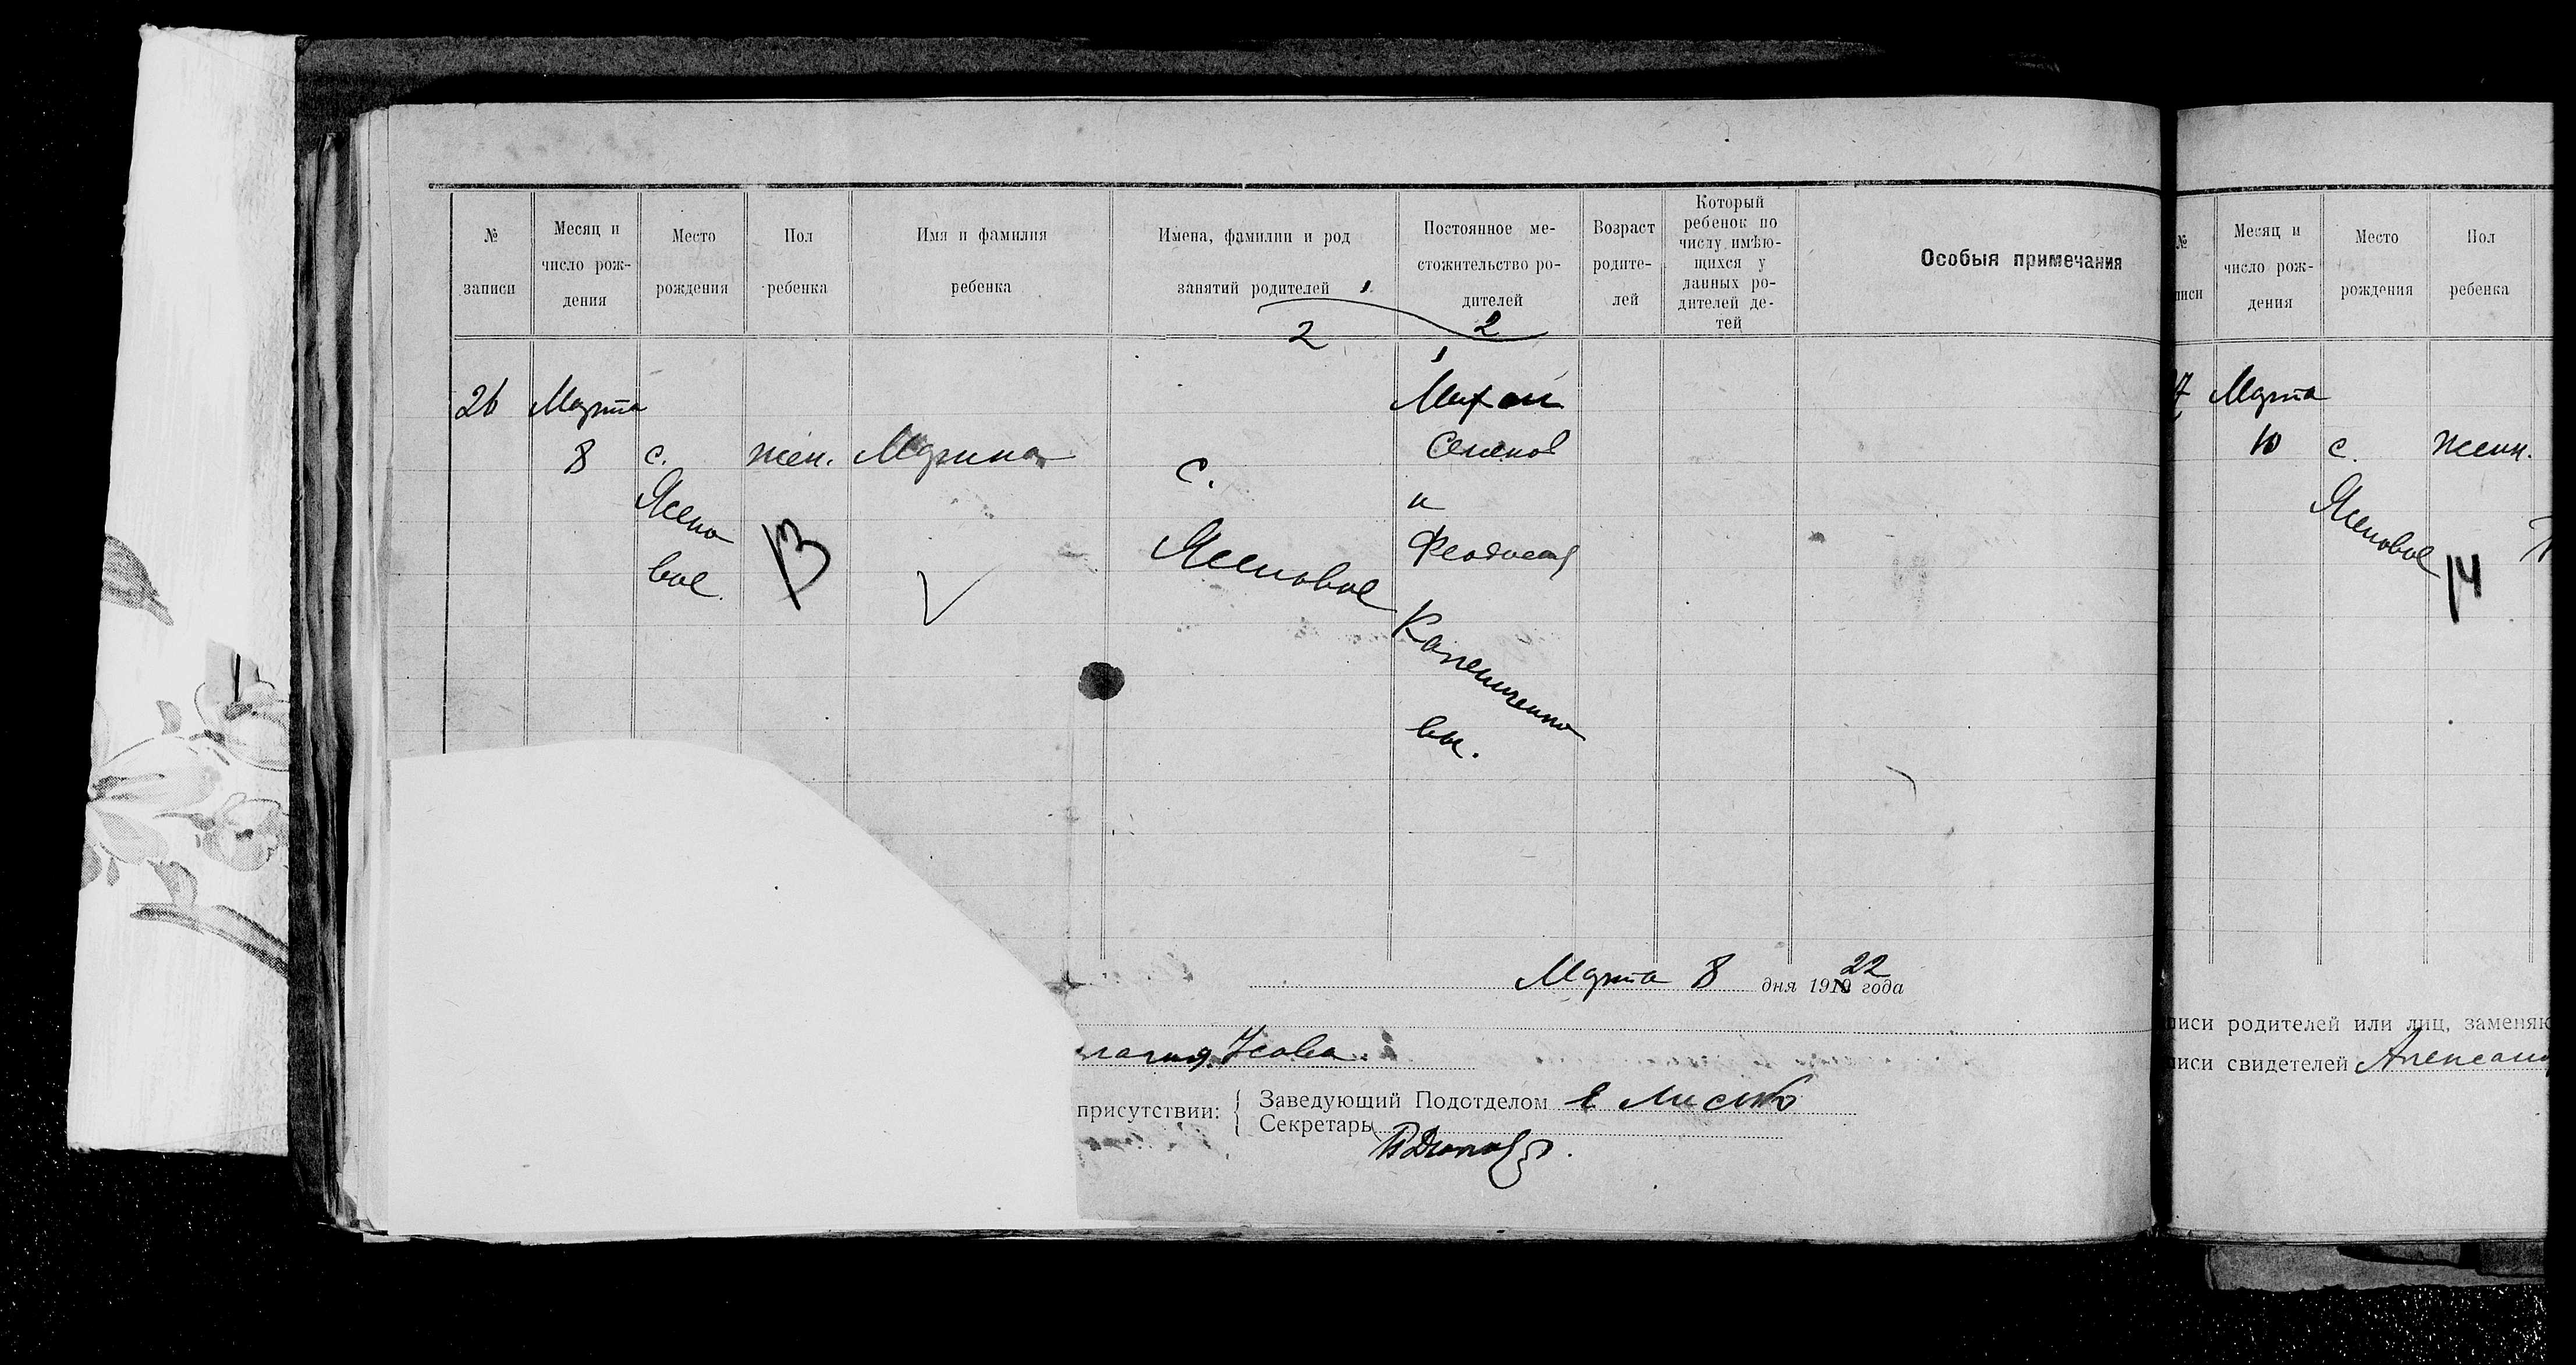 № записи
Месяц и число рождения
Место рождения
Пол ребенка
Имя и фамилия ребенка
Имена, фамилии и род занятий родителей 1
2
Постоянное местожительство родителей
2
Возраст родителей
Который ребенок по числу имѣющихся у данных родителей детей
Особыя примечания
26
Марта
8
с.
Ясено
вое.
жен.
13
Марина
с.
Ясеновое
1
Семенов
и
Феодосия
вы.
Марта 8 дня 1919 22 года
Усова.
присутствии:
Заведующий Подотделом
Секретарь
№
Месяц и число рождения
Место рождения
Пол ребенка
7
Марта
10
с.
Ясеновое
женн.
14
родителей или лиц,
свидетелей